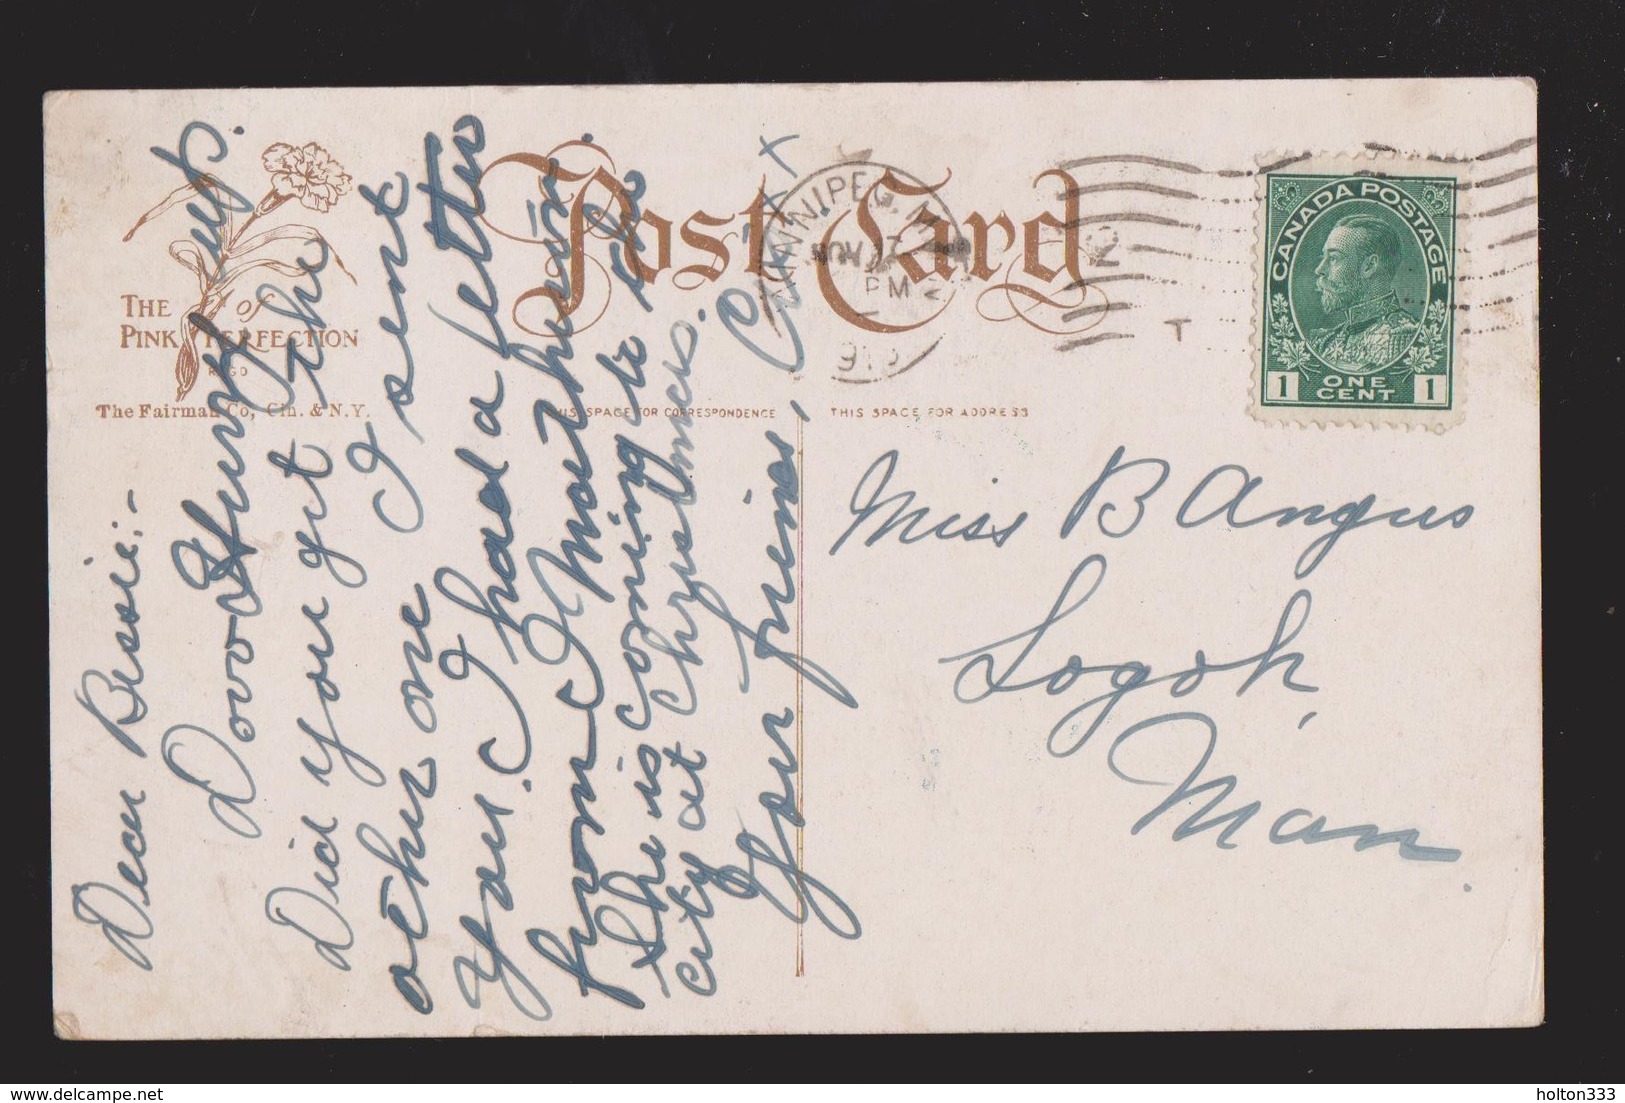 THE of
PINK PERFECTION
The Fairman Co, Cin. & N.Y.
Post Card
THIS SPACE FOR CORRESPONDENCE
THIS SPACE FOR ADDRESS
WINNIPEG, MAN
NOV 17
PM
CANADA POSTAGE
1 ONE CENT 1
Dear Bessie:-
Hurry up.
Did you get the
other one I sent
you. I had a letter
from I Mathews in
She is coming to the
city at Christmas.
Your friend,
Miss B Angus
Logoh,
Man.
holton333